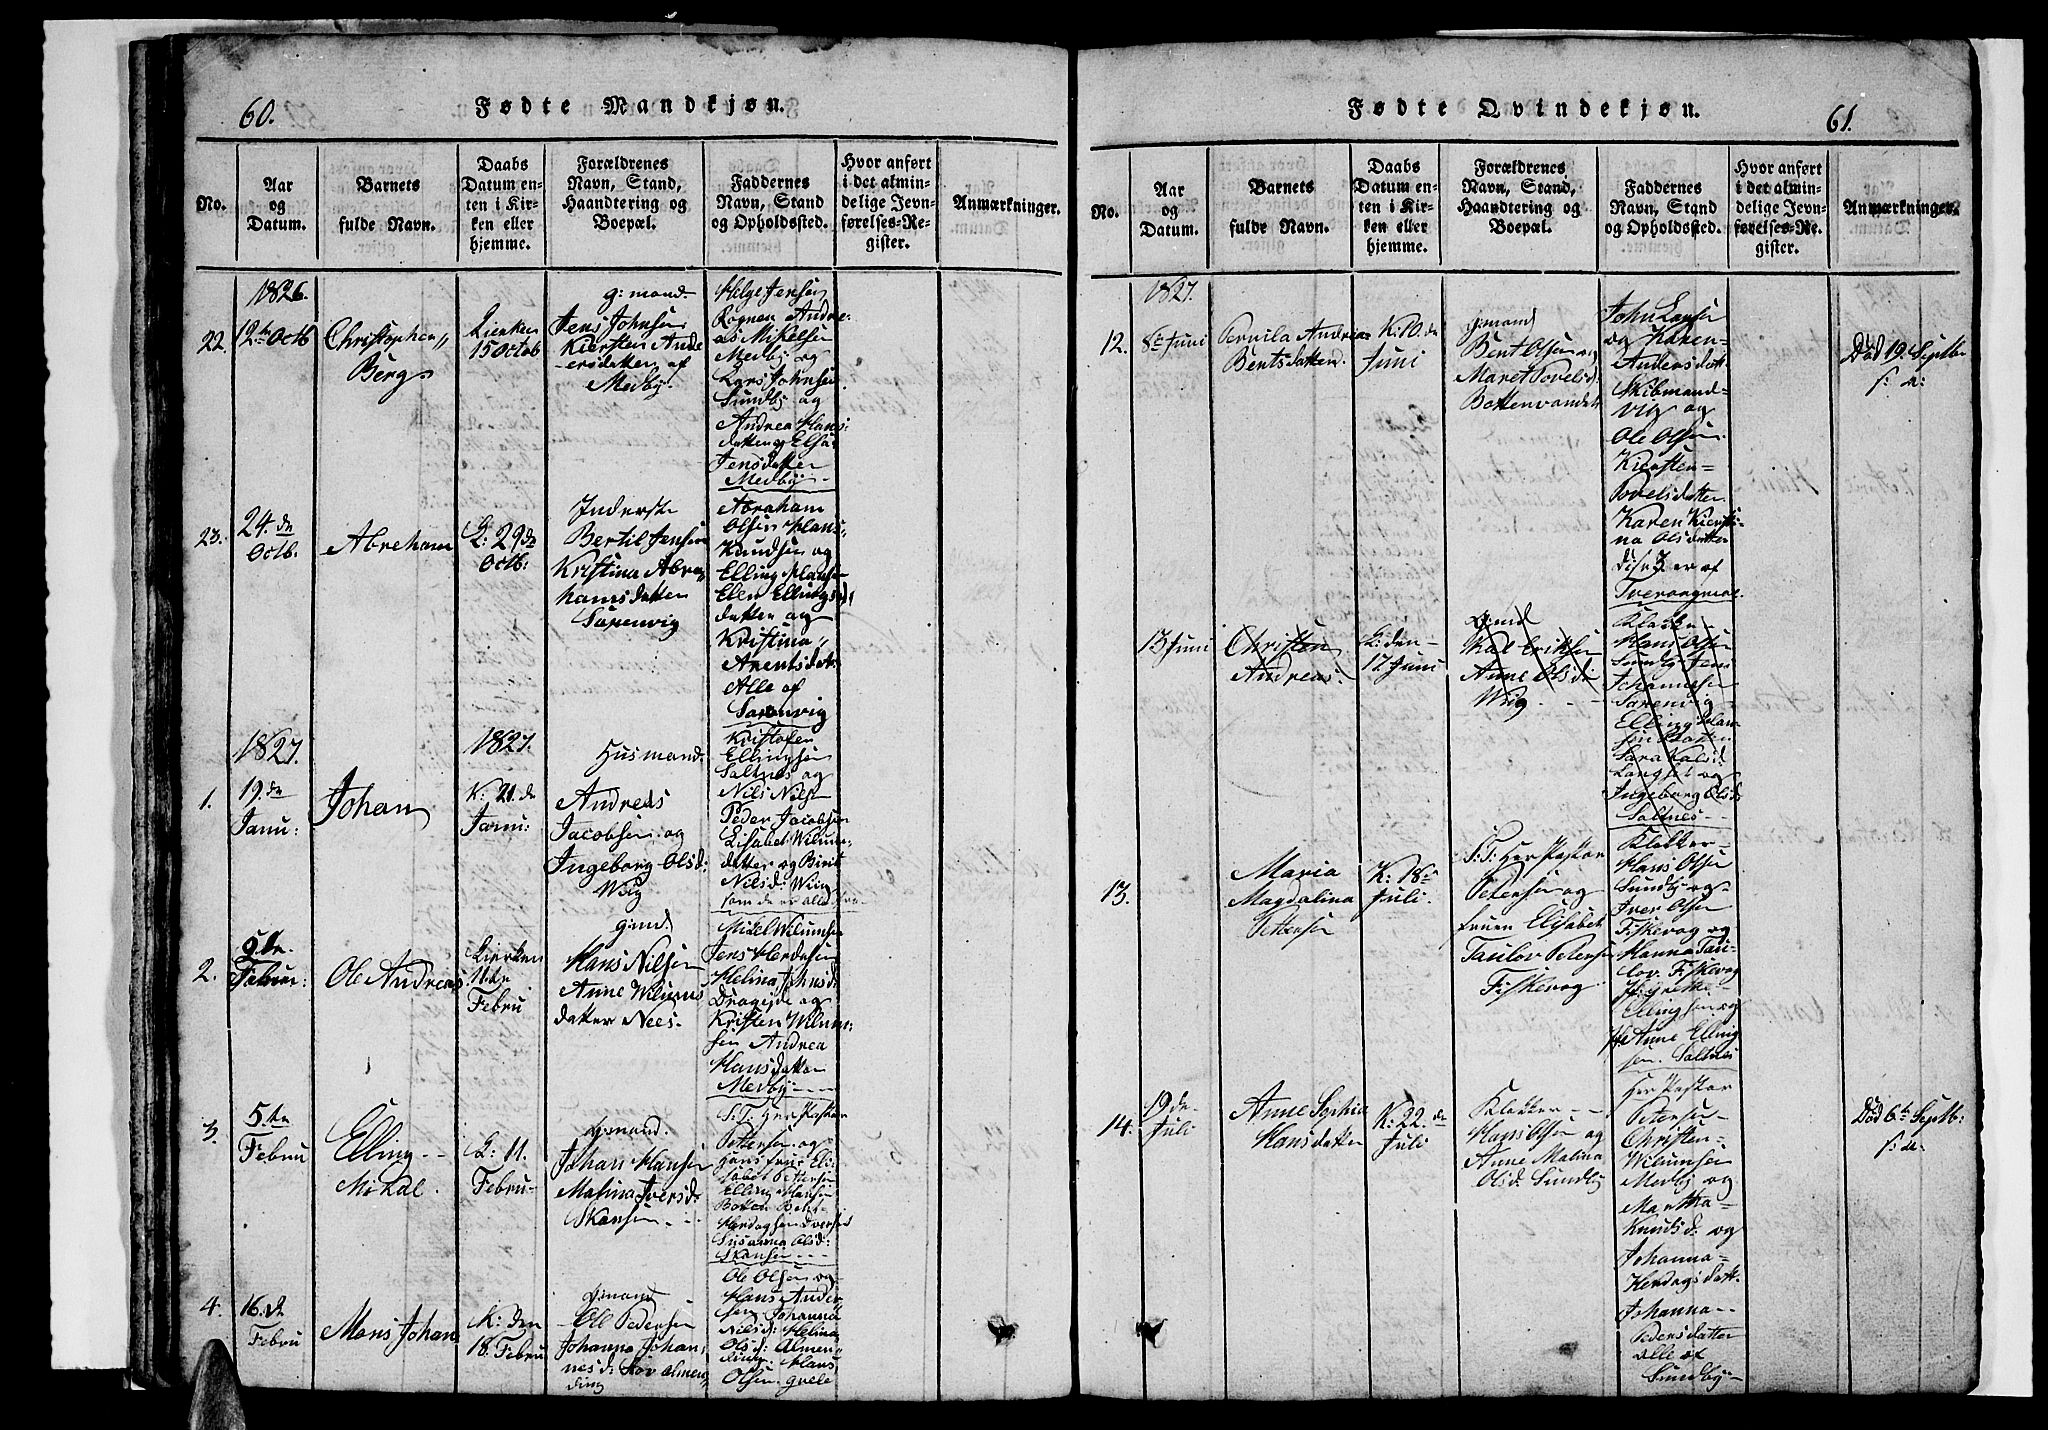 60.
Fødte Mandkjøn.
No.
Aar
og
Datum.
Barnets
fulde Navn.
Daabs
Datum en-
ten i Kir-
ken eller
hjemme.
Forældrenes
Navn, Stand,
Haandtering og
Boepæl.
Faddernes
Navn, Stand
og Opholdssted.
Hvor anført
i det almin-
delige Jevn-
førelses-Re-
gister.
Anmærkninger.
1826.
22.
12te Octb
Christopher
Berg
Kierken
15 Octob
g: mand.
Jens Johnsen
Kiersten Ande
ersdatter af
Medby.
Helge Jensen
Rognen Andre-
as Mikelsen
Medby og
Lars Johnsen
Sundby og
Andrea Hans
datter og Elsa
Jensdatter
Medby
23.
24. de
Octb.
Abreham
K: 29 de
Octb:
Inderste
Bertil Jensen
Kristina Abra
hamsdatter
Sørenvig
Abraham
Olsen Hans
Knudsen og
Elling Hansen
Elen Ellings
datter og
Kristina
Arentsdat
Alle af
Sørenvig
1827.
1.
19. de
Janu:
Johan
1827.
K: 21. de
Janu:
Husmand.
Andreas
Jacobsen og
Ingeborg Olsd:
Wiig
Kristofer
Ellingsen
Saltnes og
Nils Nilsen
Peder Jacobsen
Elisabet Wilum
datter og Birit
Nilsd: Wiig
2.
5 de
Februar:
Ole Andreas
Kierken
11te
Febru
g:md.
Hans Nilsen
Anne Wilums
datter Nees.
Mikel Wilumsen
Jens Herdesen
Helina Johnsd:
og
Kristen Wilum
sen Andrea
Hansdatter
Medby
3.
5. te
Febru
Elling
Mikal.
K: 11.
Febru-
g:mand.
Johan Hansen
Malina Iversd:
Skansen
S: T: Her Pastor
Petersen og
hans frue Eli-
sabet Petersen
Elling Hansen
Susanna Olsd:
Skansen
4.
16. de
Febru
Mons Johan
K: den
18. Febru
g:mand
Ole Pedersen
Johanna Johan
nesd: Stor almen
ding
Ole Olsen og
Hans Ander
sen Johanna
Nilsd: Helina
Olsd: Almen
ding Hans
Olsen
61.
Fødte Qvindekjøn.
No.
Aar
og
Datum.
Barnets
fulde Navn.
Daabs
Datum en-
ten i Kir-
ken eller
hjemme.
Forældrenes
Navn, Stand,
Haandtering og
Boepæl.
Faddernes
Navn, Stand
og Opholdssted.
Hvor anført
i det almin-
delige Jevn-
førelses-Re-
gister.
Anmærkninger.
1827.
12.
8de Juni
Pernila Andrea
Bentsdatter.
K: 10. de
Juni
g:mand
Bent Olsen og
Maret Povelsd:
Bottenvandet
John Larsen
og Karen
Andersdatt.
Skibmand-
vig og
Ole Olsen
Kiersten
Povelsdatter
Karen Kiersti-
na Olsdatter
dise 3. er af
Død 19. Septbr
s: a:
13 Juni
Christen
Andreas
K: den
17 Juni
g:md
Kal Eriksen
Anne Olsd:
Wiig
Klokker
Hans Olsen
Sundby Jens
Johannesen
Sørenvig
Elling Han-
sen
Sara Kalsd:
Langset og
Ingeborg Olsd:
Saltnes
13.
Maria
Magdalina
Pettersen
K: 18de
Juli.
S: T: Her Pastor
Petersen og
fruen Elisabet
Taulov Petersen
Fiskevog
Klokker
Hans Olsen
Sundby og
Iver Olsen
Fiskevog og
Hanna Tau-
lov Fiskevog
Ellingsen og
Anne Elling
sen. Saltnes
14.
19 de
Juli
Anne Sophia
Hansdatter
K: 22. de
Juli
Klokker
Hans Olsen og
Anne Malina
Olsd: Sundby
Her Pastor
Petersen
Christen
Wilumsen
Medby og
Martha
Knudsd: og
Johanna
Herdagsdatt.
Johanna
Pedersdatter
alle af
Sundby
Død 6te Septbr:
s: a: